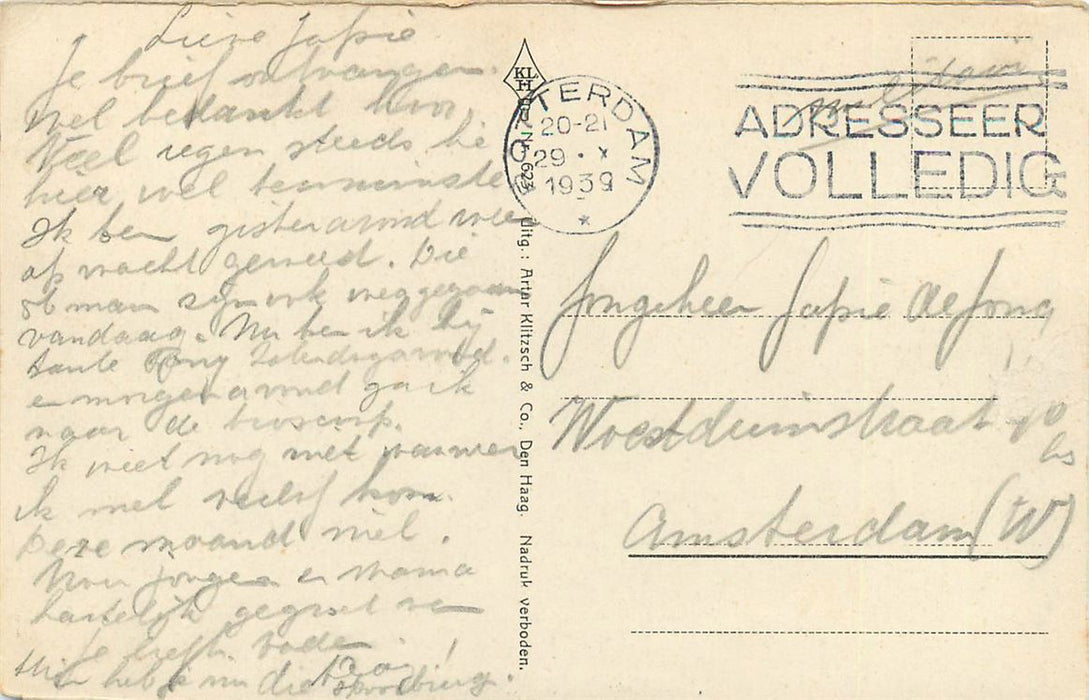 Lieve Japie
Je brief ontvangen.
Wel bedankt hoor.
Veel regen steeds he
hier wel tenminste
Ik ben gisteravond weer
op wacht geweest. Die
man zijn ook weggegaan
vandaag. Nu ben ik bij
tante Zaterdagavond.
en morgenavond ga ik
naar de bioscoop.
Ik weet nog niet wanneer
ik met verlof kom.
Deze maand niet.
Nou jongen en Mama
hartelijk gegroet van
je liefh. Vader
heb je nu die
KL
H
Nr. 623
Uitg.: Artur Klitzsch & Co., Den Haag. Nadruk verboden.
AMSTERDAM
20-21
29 · X
1939
*
ADRESSEER
VOLLEDIG
Jongeheer Japie de Jong
Woestduinstraat 90
hs
Amsterdam (W)